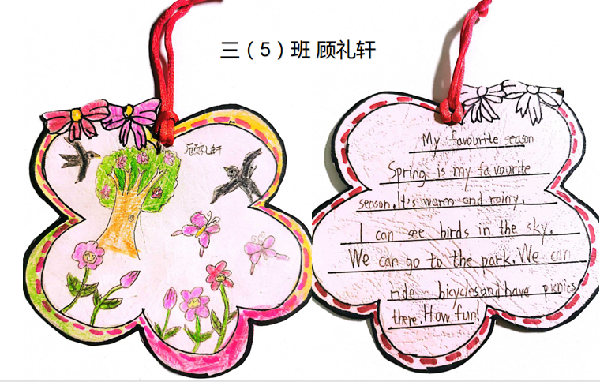 三（5）班 顾礼轩
顾礼轩
My favourite season
Spring is my favourite
season. It's warm and rainy.
I can see birds in the sky.
We can go to the park. We can
ride bicycles and have picnics
there. How fun!